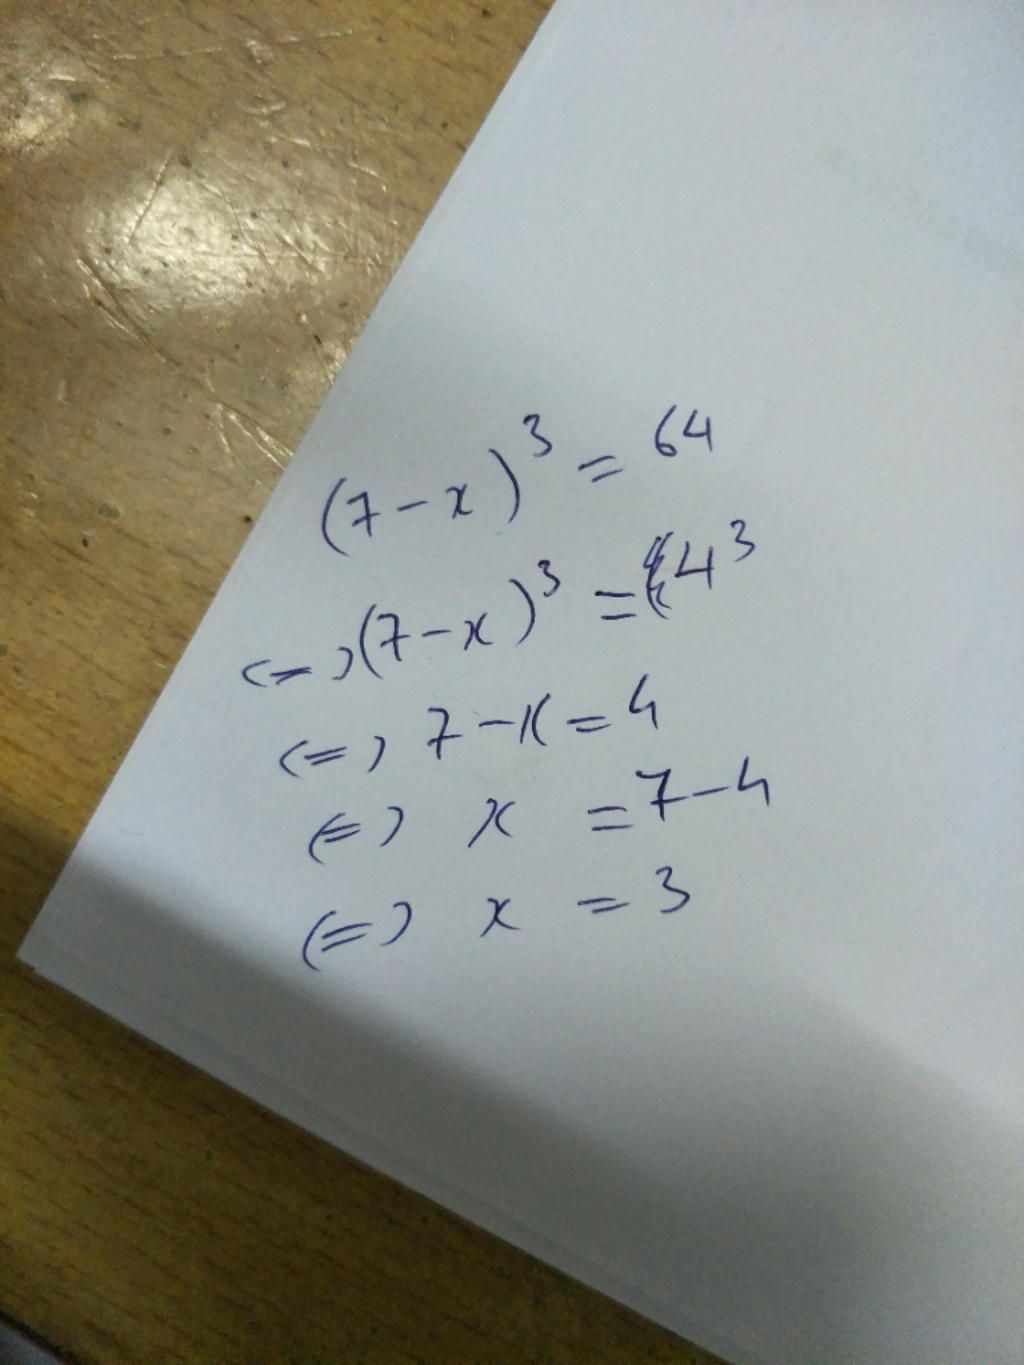 (7-x)³ = 64
<=>(7-x)³ = 4³
<=> 7-x = 4
<=> x = 7-4
<=> x = 3